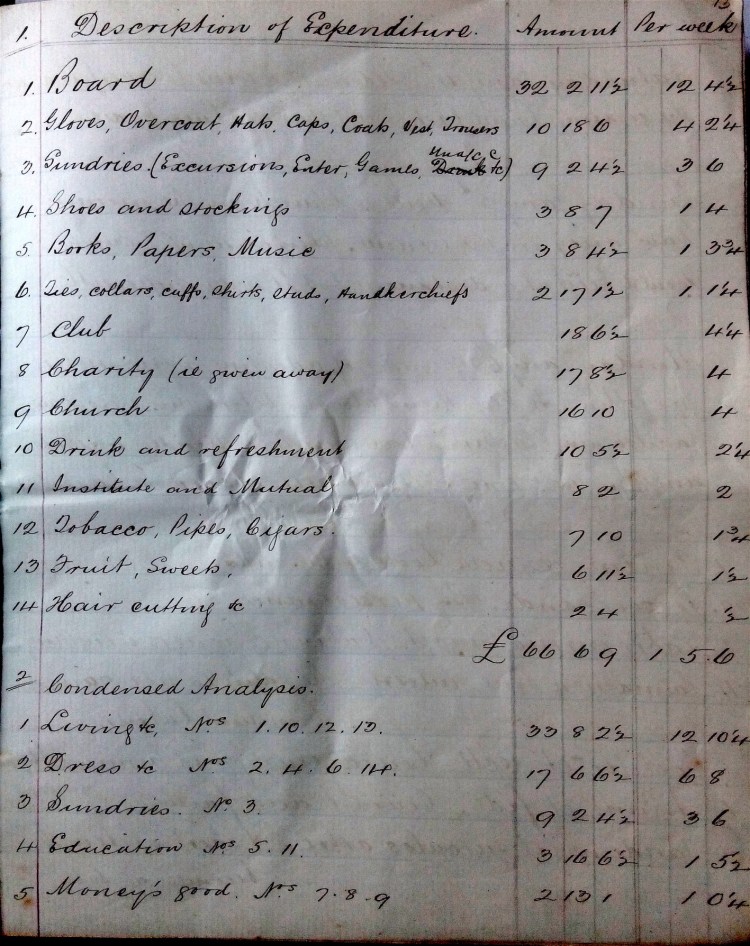 13
1. Description of Expenditure. Amount Per week
1. Board 32 2 11½ 12 4½
2. Gloves, Overcoat, Hats, Caps, Coats, Vest, Trousers 10 18 6 4 2¼
3. Sundries (Excursions, Enter, Games, Drink &c) 9 2 4½ 3 6
4. Shoes and stockings 3 8 7 1 4
5. Books, Papers, Music 3 8 4½ 1 3¾
6. Ties, collars, cuffs, shirts, studs, Handkerchiefs 2 17 1½ 1 1¼
7 Club 18 6½ 4¼
8 Charity (ie given away) 17 8½ 4
9 Church 16 10 4
10 Drink and refreshment 10 5½ 2¼
11 Institute and Mutual 8 2 2
12 Tobacco, Pipes, Cigars. 7 10 1¾
13 Fruit, Sweets, 6 11½ 1½
14 Hair cutting &c 2 4 ½
£ 66 6 9 1 5.6
2 Condensed Analysis.
1 Living &c, Nos 1. 10. 12. 13. 33 8 2½ 12 10¼
2 Dress &c Nos 2. 4. 6. 14. 17 6 6½ 6 8
3 Sundries. No 3. 9 2 4½ 3 6
4 Education Nos 5. 11. 3 16 6½ 1 5½
5 Money's good. Nos 7. 8. 9 2 13 1 1 0¼